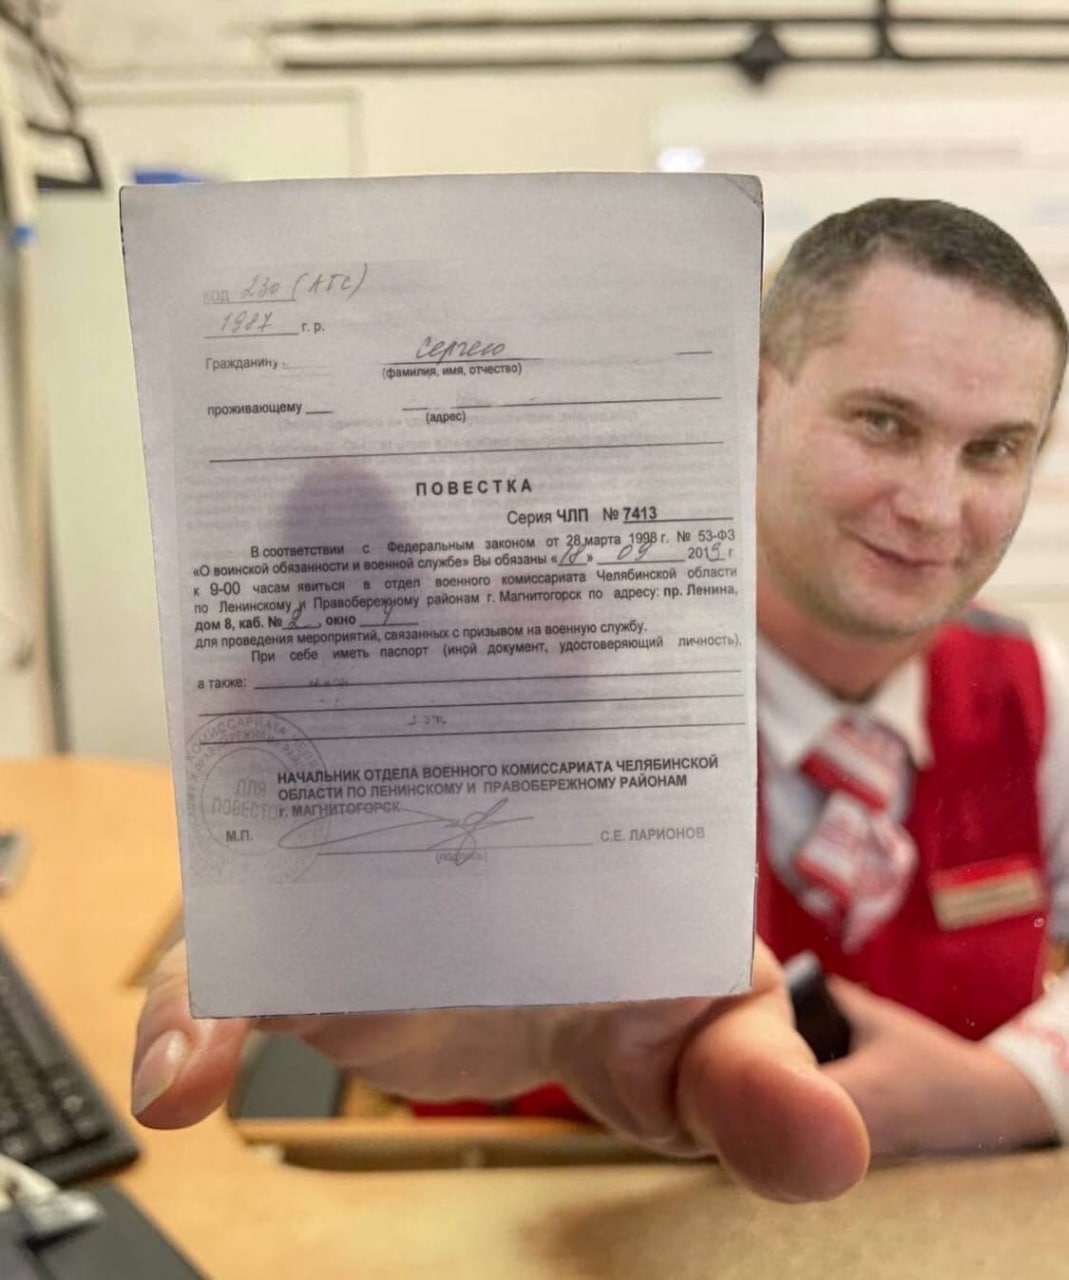 код 230 (АГС)
1987 г. р.
Гражданину Сергею
(фамилия, имя, отчество)
проживающему
(адрес)
ПОВЕСТКА
Серия ЧЛП № 7413
В соответствии с Федеральным законом от 28 марта 1998 г. № 53-ФЗ
«О воинской обязанности и военной службе» Вы обязаны «18» 09 2019 г
к 9-00 часам явиться в отдел военного комиссариата Челябинской области
по Ленинскому и Правобережному районам г. Магнитогорск по адресу: пр. Ленина,
дом 8, каб. № 2, окно
для проведения мероприятий, связанных с призывом на военную службу.
При себе иметь паспорт (иной документ, удостоверяющий личность).
а также:
НАЧАЛЬНИК ОТДЕЛА ВОЕННОГО КОМИССАРИАТА ЧЕЛЯБИНСКОЙ
ОБЛАСТИ ПО ЛЕНИНСКОМУ И ПРАВОБЕРЕЖНОМУ РАЙОНАМ
г. МАГНИТОГОРСК
М.П. С.Е. ЛАРИОНОВ
(подпись)
ДЛЯ
ПОВЕСТОК